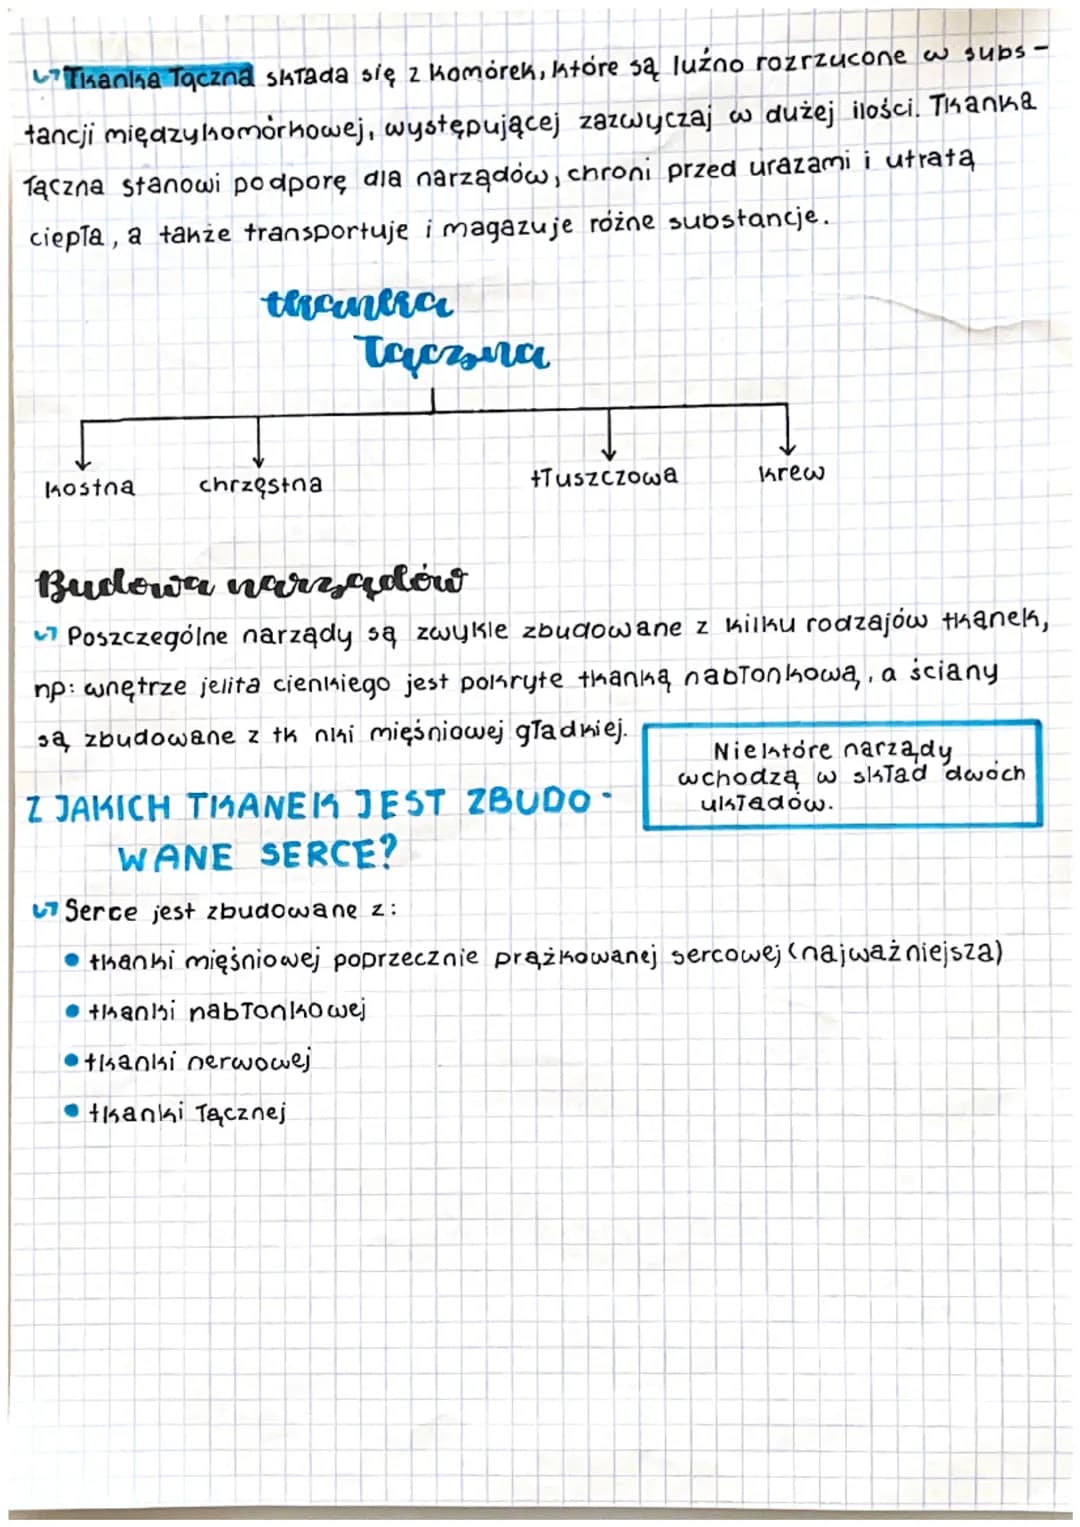 ↳ Tkanka łączna składa się z komórek, które są luźno rozrzucone w subs-
tancji międzykomórkowej, występującej zazwyczaj w dużej ilości. Tkanka
łączna stanowi podporę dla narządów, chroni przed urazami i utratą
ciepła, a także transportuje i magazuje różne substancje.
tkanka
łączna
kostna chrzęstna tłuszczowa krew
Budowa narządów
↳ Poszczególne narządy są zwykle zbudowane z kilku rodzajów tkanek,
np: wnętrze jelita cienkiego jest pokryte tkanką nabłonkową, a ściany
są zbudowane z tk nki mięśniowej gładkiej.
Niektóre narządy
wchodzą w skład dwóch
układów.
Z JAKICH TKANEK JEST ZBUDO-
WANE SERCE?
↳ Serce jest zbudowane z:
• tkanki mięśniowej poprzecznie prążkowanej sercowej (najważniejsza)
• tkanki nabłonkowej
• tkanki nerwowej
• tkanki łącznej